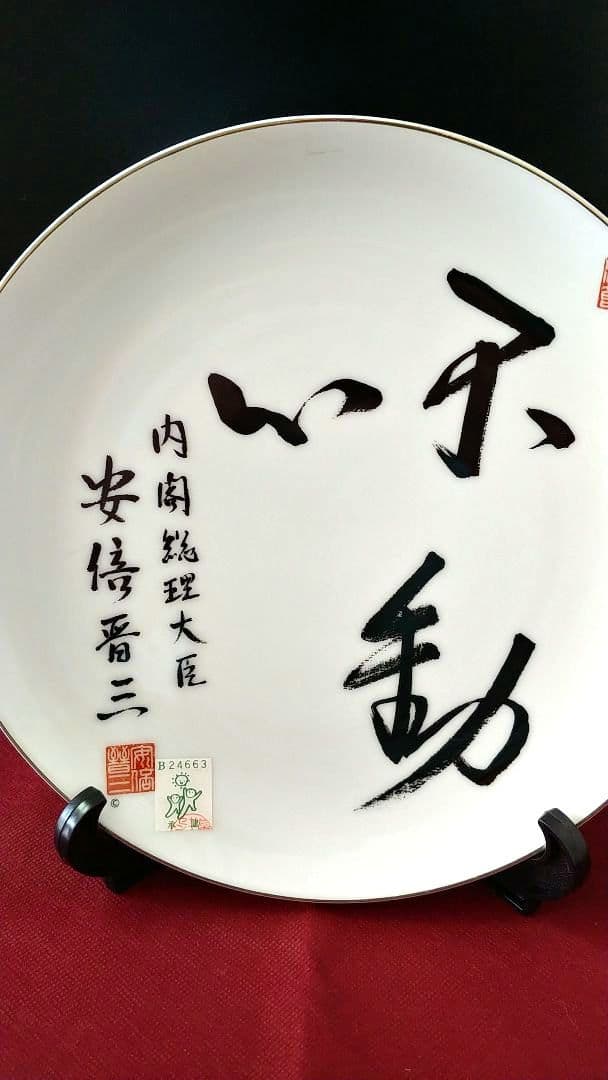 不動
心
内閣総理大臣
安倍晋三
安倍晋三
©
B24663